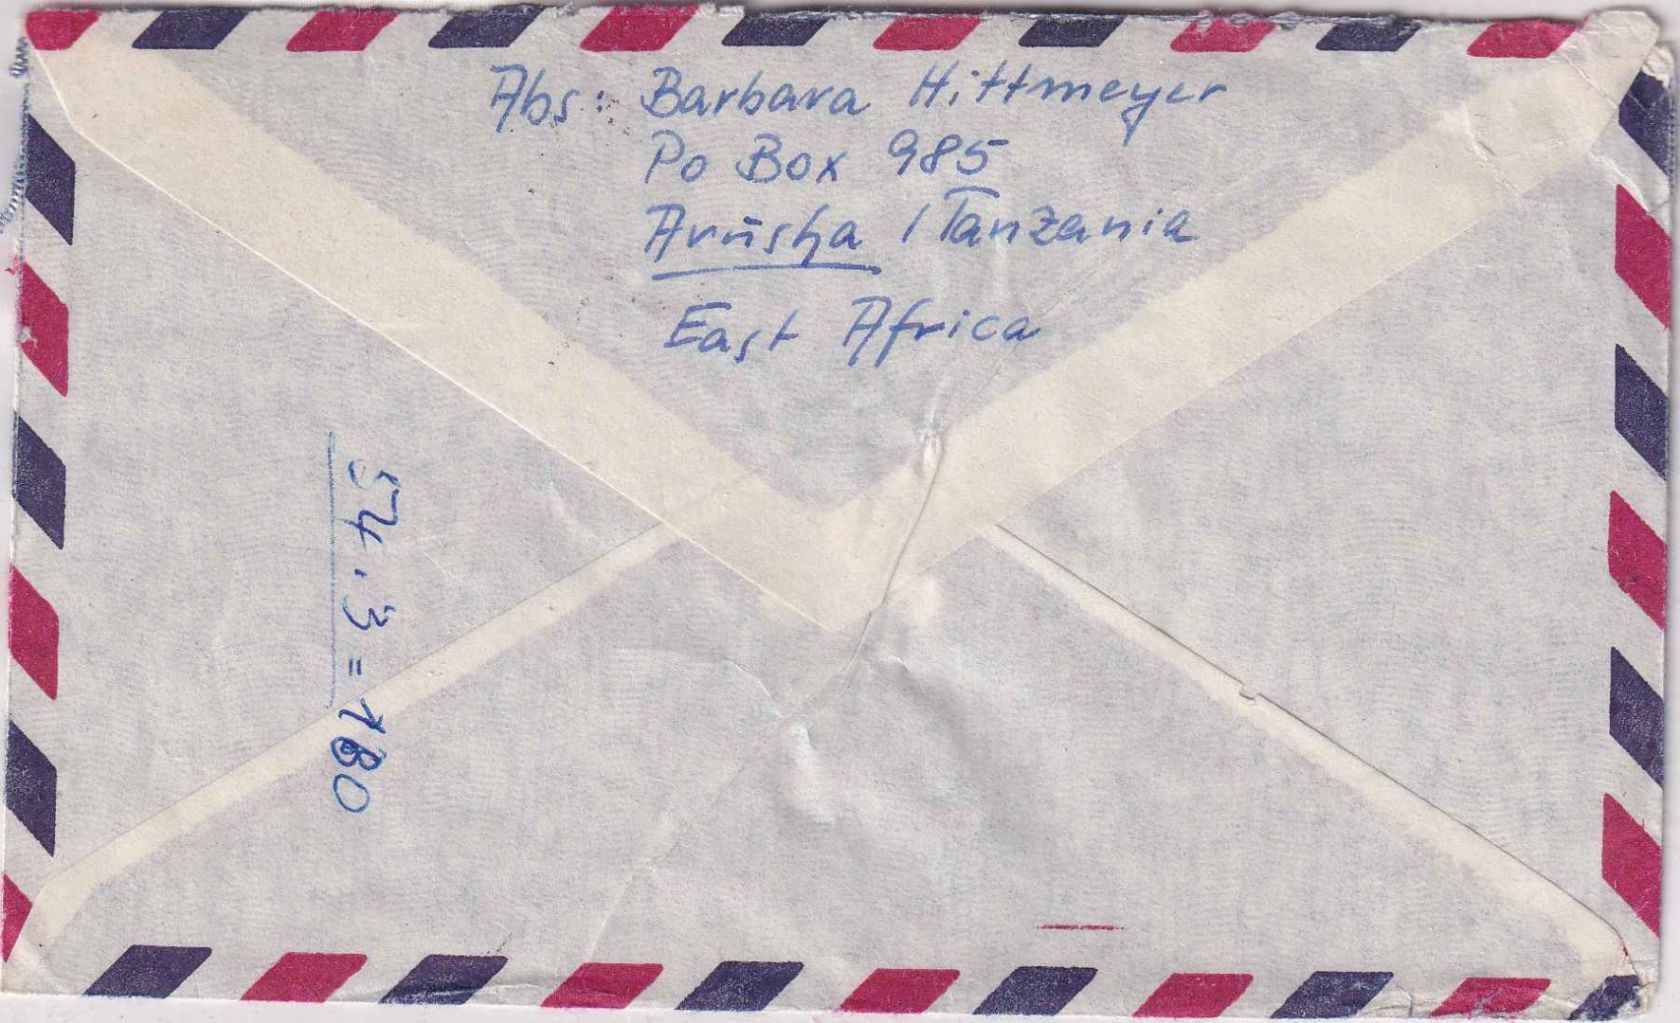 Abs: Barbara Hittmeyer
Po Box 985
Arusha / Tanzania
East Africa
54 . 3 = 180